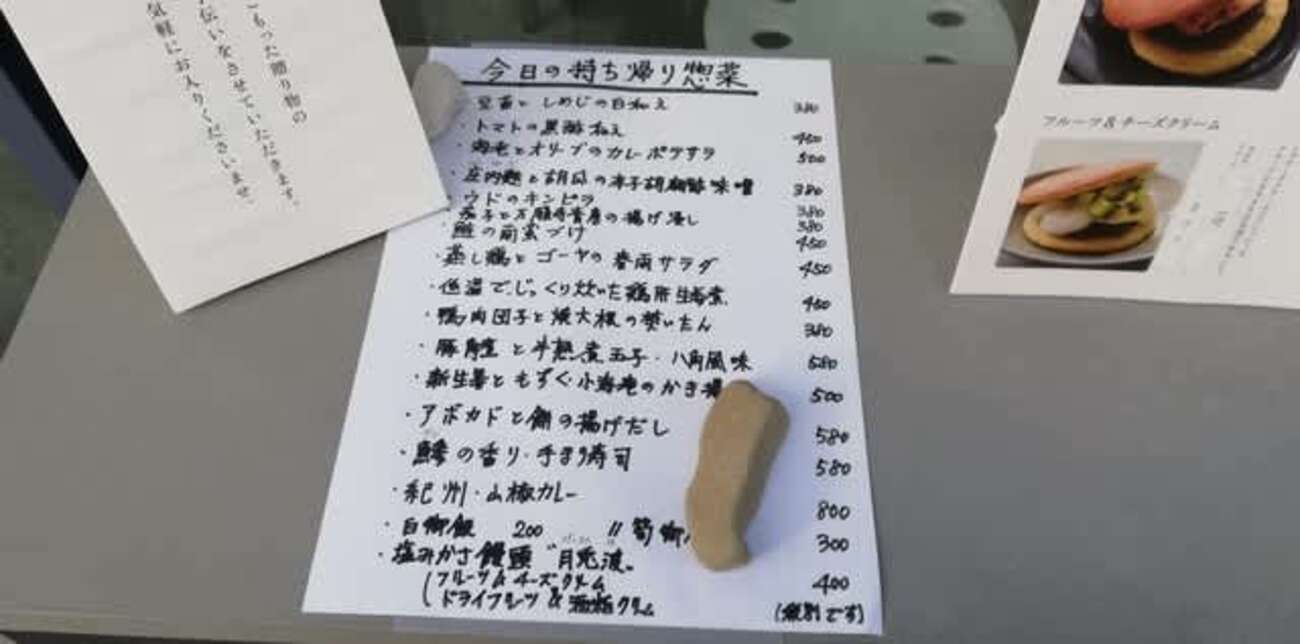 こもった贈り物の
伝いをさせていただきます。
気軽にお入りくださいませ
今日の持ち帰り惣菜
・豆苗としめじの白和え 380
・トマトの黒酢和え 450
・海老とオリーブのカレーポテサラ 500
・庄内麩と胡瓜の辛子胡麻酢味噌 380
・ウドのキンピラ 380
・茄子と万願寺唐唐の揚げ浸し 380
・鯵の南蛮づけ 450
・蒸し鶏とゴーヤの春雨サラダ 450
・低温でじっくり炊いた鶏肝生姜煮 450
・鴨肉団子と焼大根の焚いたん 380
・豚角煮と半熟煮玉子・八角風味 580
・新生姜ともずく・小海老のかき揚 500
・アボカドと餅の揚げだし 580
・鯵の香り・手まり寿司 580
・紀州・山椒カレー 800
・白御飯 200 〃 筍御 300
・塩みかさ饅頭 "月兎波"
フルーツ&チーズクリーム 400
ドライフルーツ & 酒粕クリーム
(税別です)
フルーツ&チーズクリーム